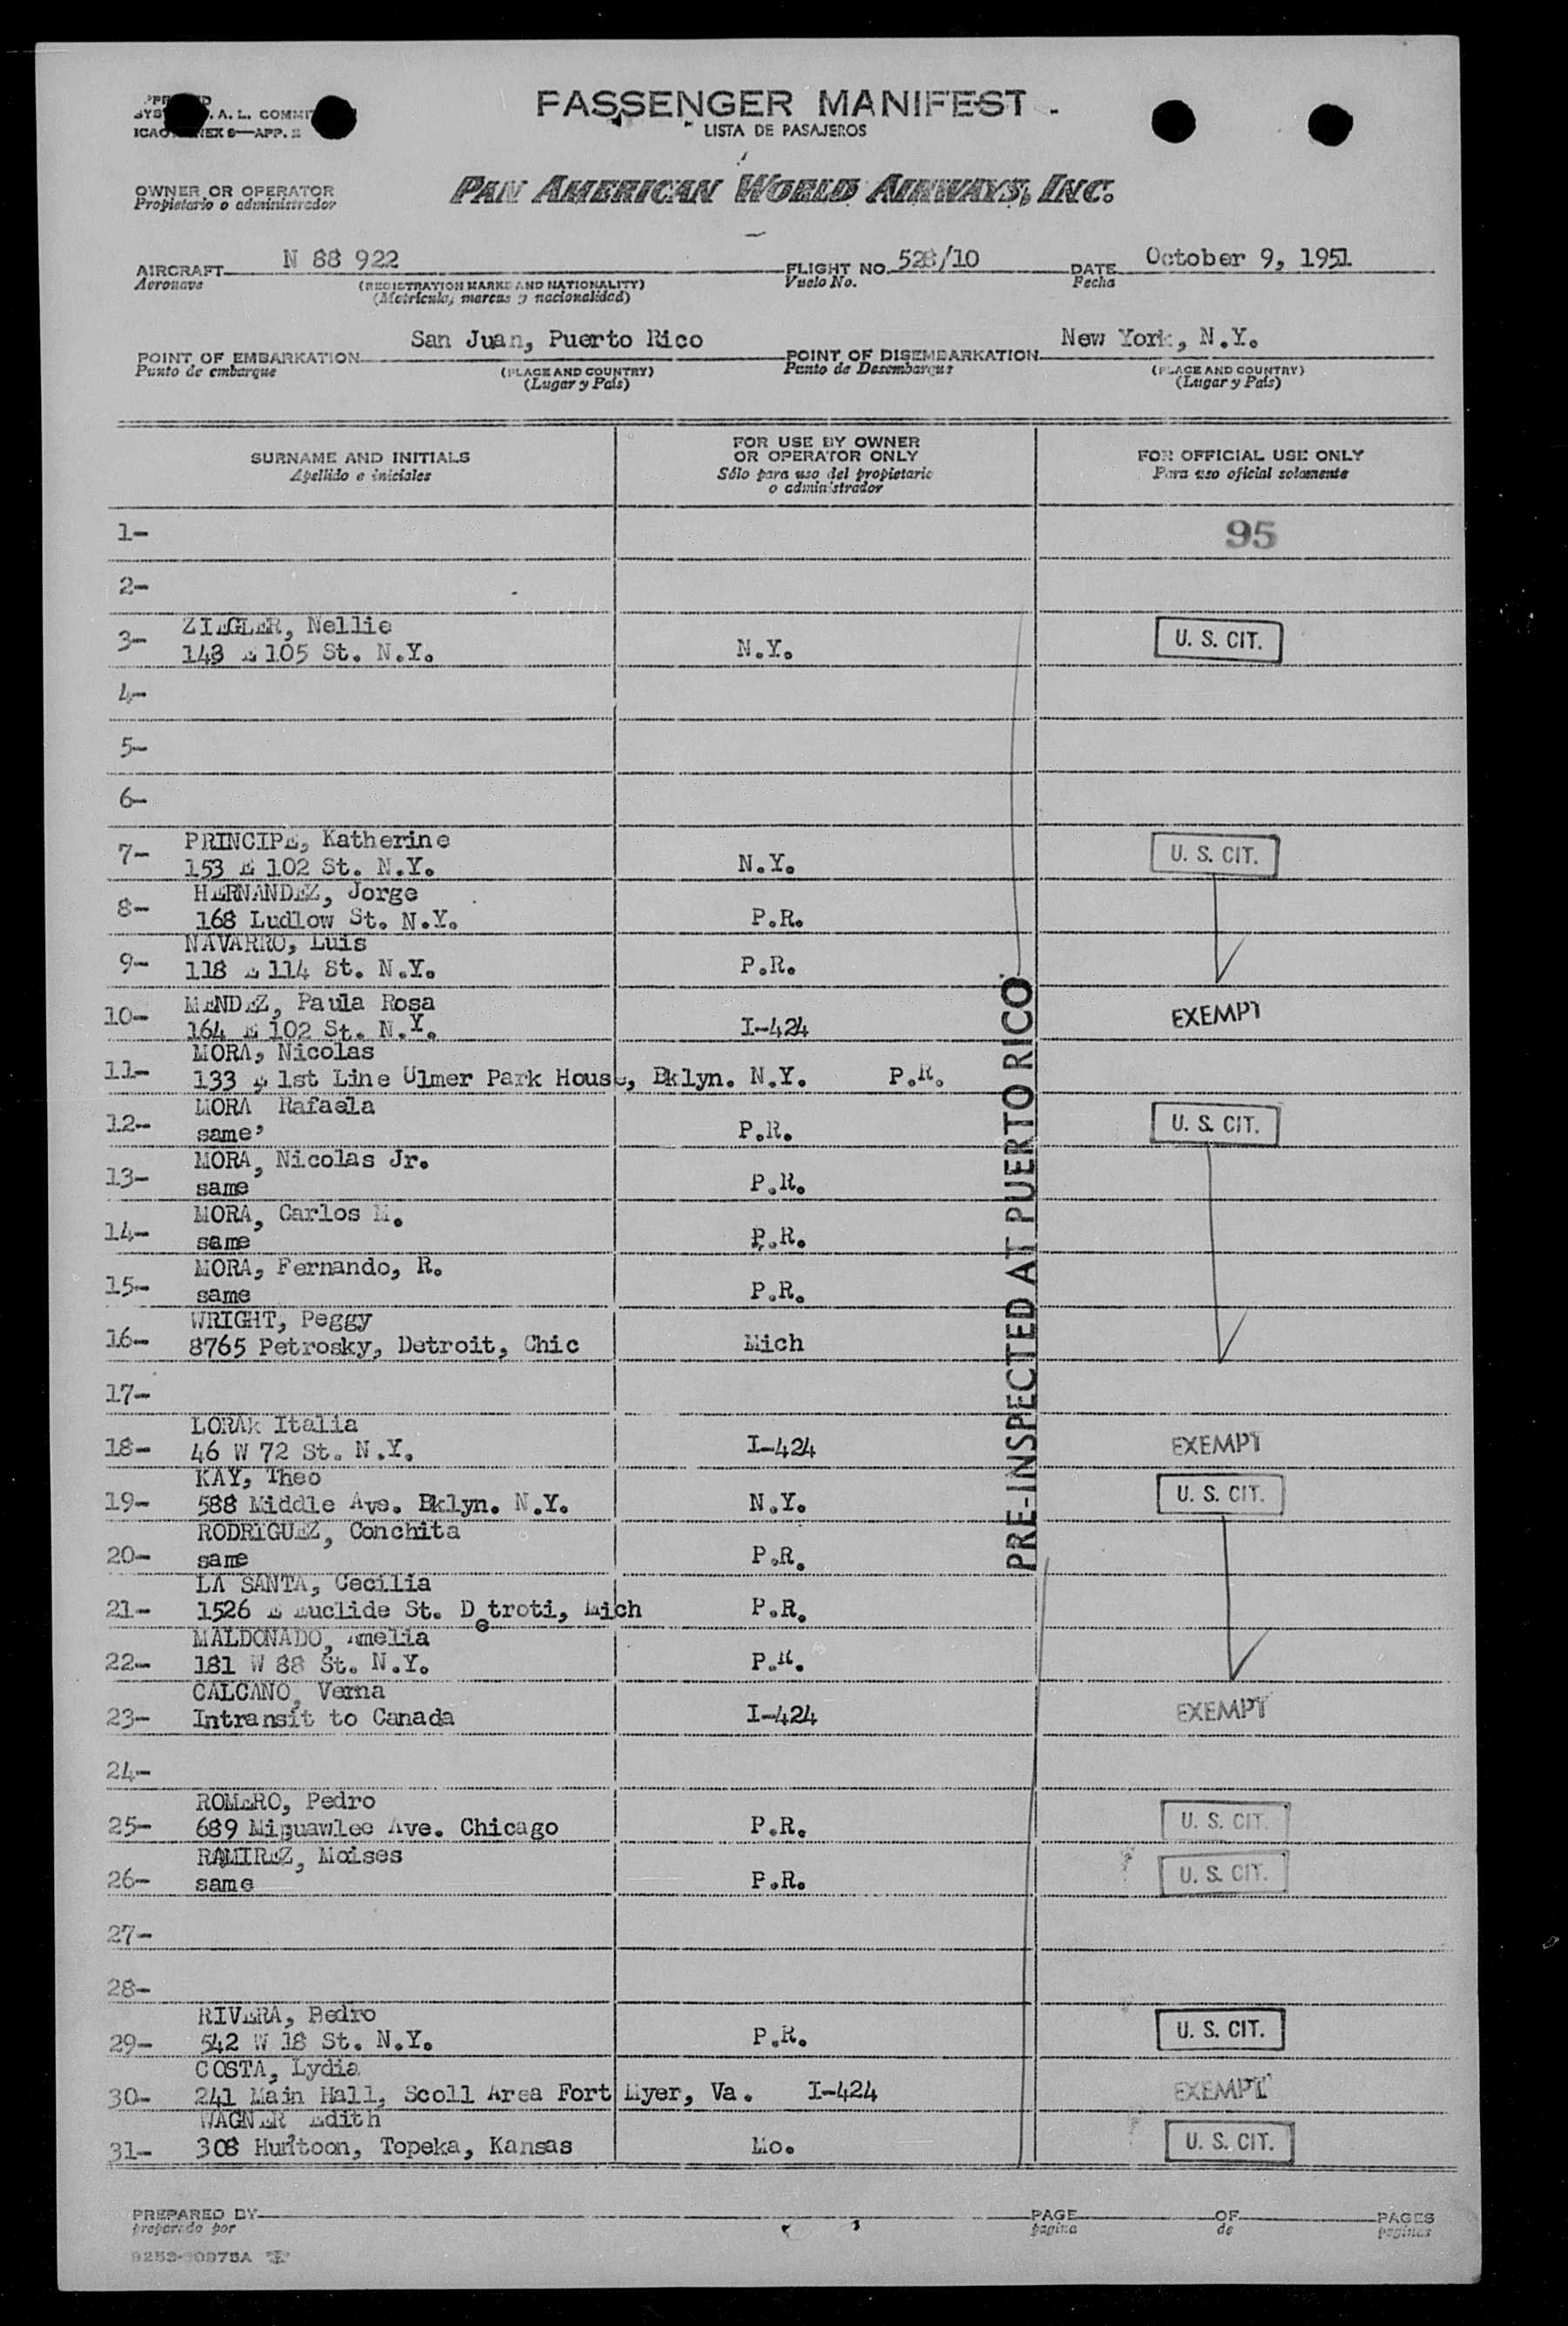 A. L. COMMIT
ICAO ANNEX 9—APP. 2
PASSENGER MANIFEST
LISTA DE PASAJEROS
OWNER OR OPERATOR
Propietario o administrador
PAN AMERICAN WORLD AIRWAYS, INC.
AIRCRAFT N 88 922 FLIGHT NO. 528/10 DATE October 9, 1951
Aeronave (REGISTRATION MARKS AND NATIONALITY) Vuelo No. Fecha
(Matricula, marcas y nacionalidad)
POINT OF EMBARKATION San Juan, Puerto Rico POINT OF DISEMBARKATION New York, N.Y.
Punto de embarque (PLACE AND COUNTRY) Punto de Desembarque (PLACE AND COUNTRY)
(Lugar y País) (Lugar y País)
SURNAME AND INITIALS
Apellido e iniciales
FOR USE BY OWNER
OR OPERATOR ONLY
Sólo para uso del propietario
o administrador
FOR OFFICIAL USE ONLY
Para uso oficial solamente
1- 95
2-
ZIEGLER, Nellie
3- 143 E 105 St. N.Y. N.Y. U. S. CIT.
4-
5-
6-
PRINCIPE, Katherine
7- 153 E 102 St. N.Y. N.Y. U. S. CIT.
HERNANDEZ, Jorge
8- 168 Ludlow St. N.Y. P.R.
NAVARRO, Luis
9- 118 E 114 St. N.Y. P.R.
MENDEZ, Paula Rosa
10- 164 E 102 St. N.Y. I-424 EXEMPT
MORA, Nicolas
11- 133 E 1st Line Ulmer Park House, Bklyn. N.Y. P.R.
MORA Rafaela
12- same, P.R. U. S. CIT.
MORA, Nicolas Jr.
13- same P.R.
MORA, Carlos M.
14- same P.R.
MORA, Fernando, R.
15- same P.R.
WRIGHT, Peggy
16- 8765 Petrosky, Detroit, Chic Mich
17-
LORAk Italia
18- 46 W 72 St. N.Y. I-424 EXEMPT
KAY, Theo
19- 588 Middle Ave. Bklyn. N.Y. N.Y. U. S. CIT.
RODRIGUEZ, Conchita
20- same P.R.
LA SANTA, Cecilia
21- 1526 E Euclide St. Detroti, Mich P.R.
MALDONADO, Amelia
22- 181 W 88 St. N.Y. P.R.
CALCANO, Verna
23- Intransit to Canada I-424 EXEMPT
24-
ROMERO, Pedro
25- 689 Ave. Chicago P.R. U. S. CIT.
RAMIREZ, Moises
26- same P.R. U. S. CIT.
27-
28-
RIVERA, Pedro
29- 542 W 18 St. N.Y. P.R. U. S. CIT.
COSTA, Lydia
30- 241 Main Hall, Scoll Area Fort Myer, Va. I-424 EXEMPT
WAGNER Edith
31- 308 Huntoon, Topeka, Kansas Mo. U. S. CIT.
PRE-INSPECTED AT PUERTO RICO
PREPARED BY PAGE OF PAGES
preparado por pagina de paginas